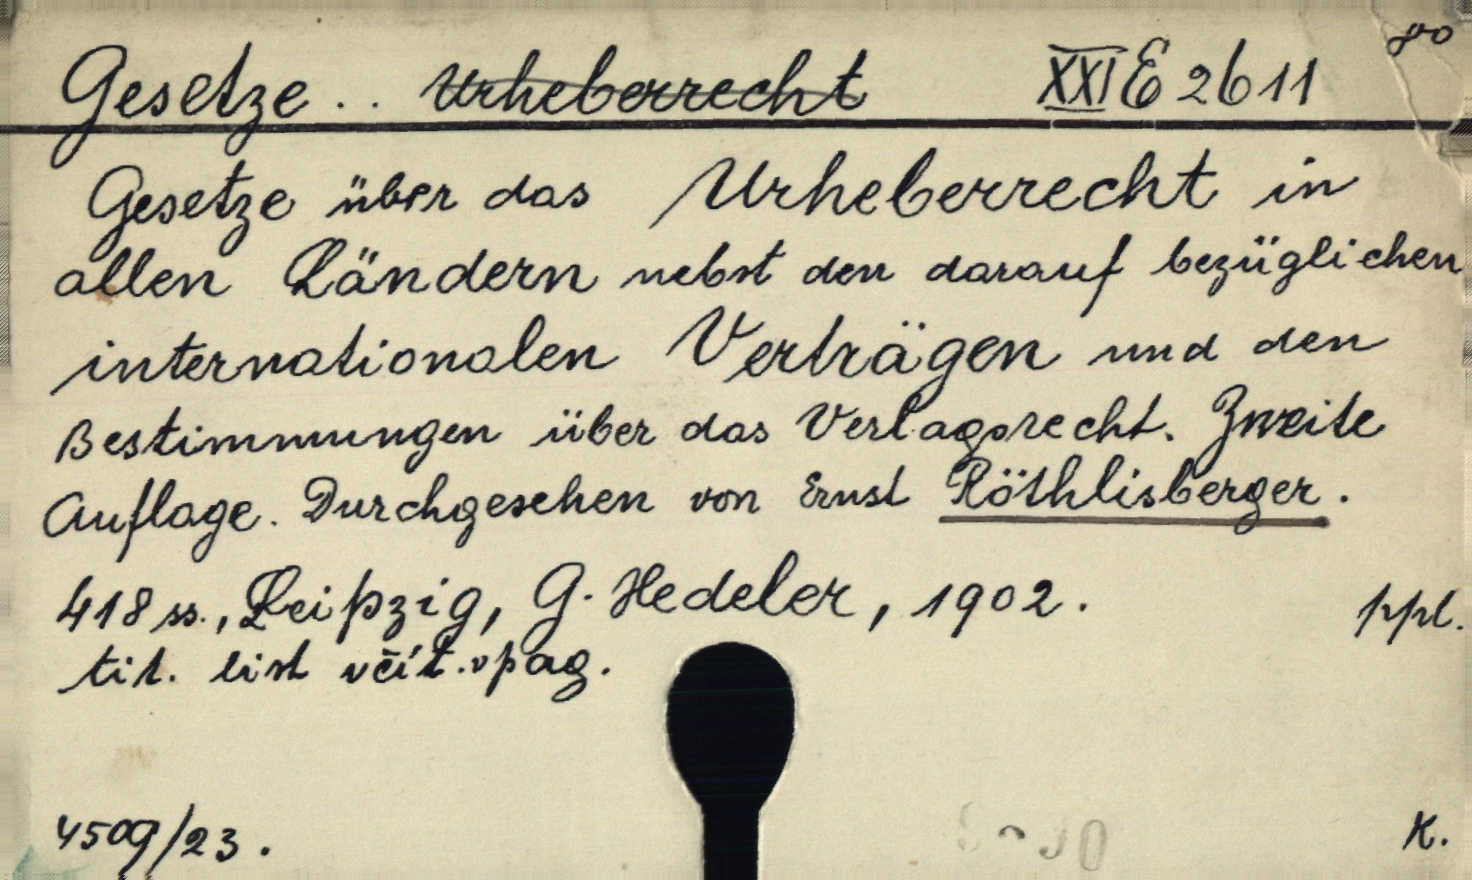 Gesetze .. Urheberrecht XXI E 2611 80
Gesetze über das Urheberrecht in
allen Ländern nebst den darauf bezüglichen
internationalen Verträgen und den
Bestimmungen über das Verlagsrecht. Zweite
Auflage. Durchgesehen von Ernst Röthlisberger.
418 ss., Leipzig, G. Hedeler, 1902. ppl.
tit. list včít. v pag.
4509/23. K.